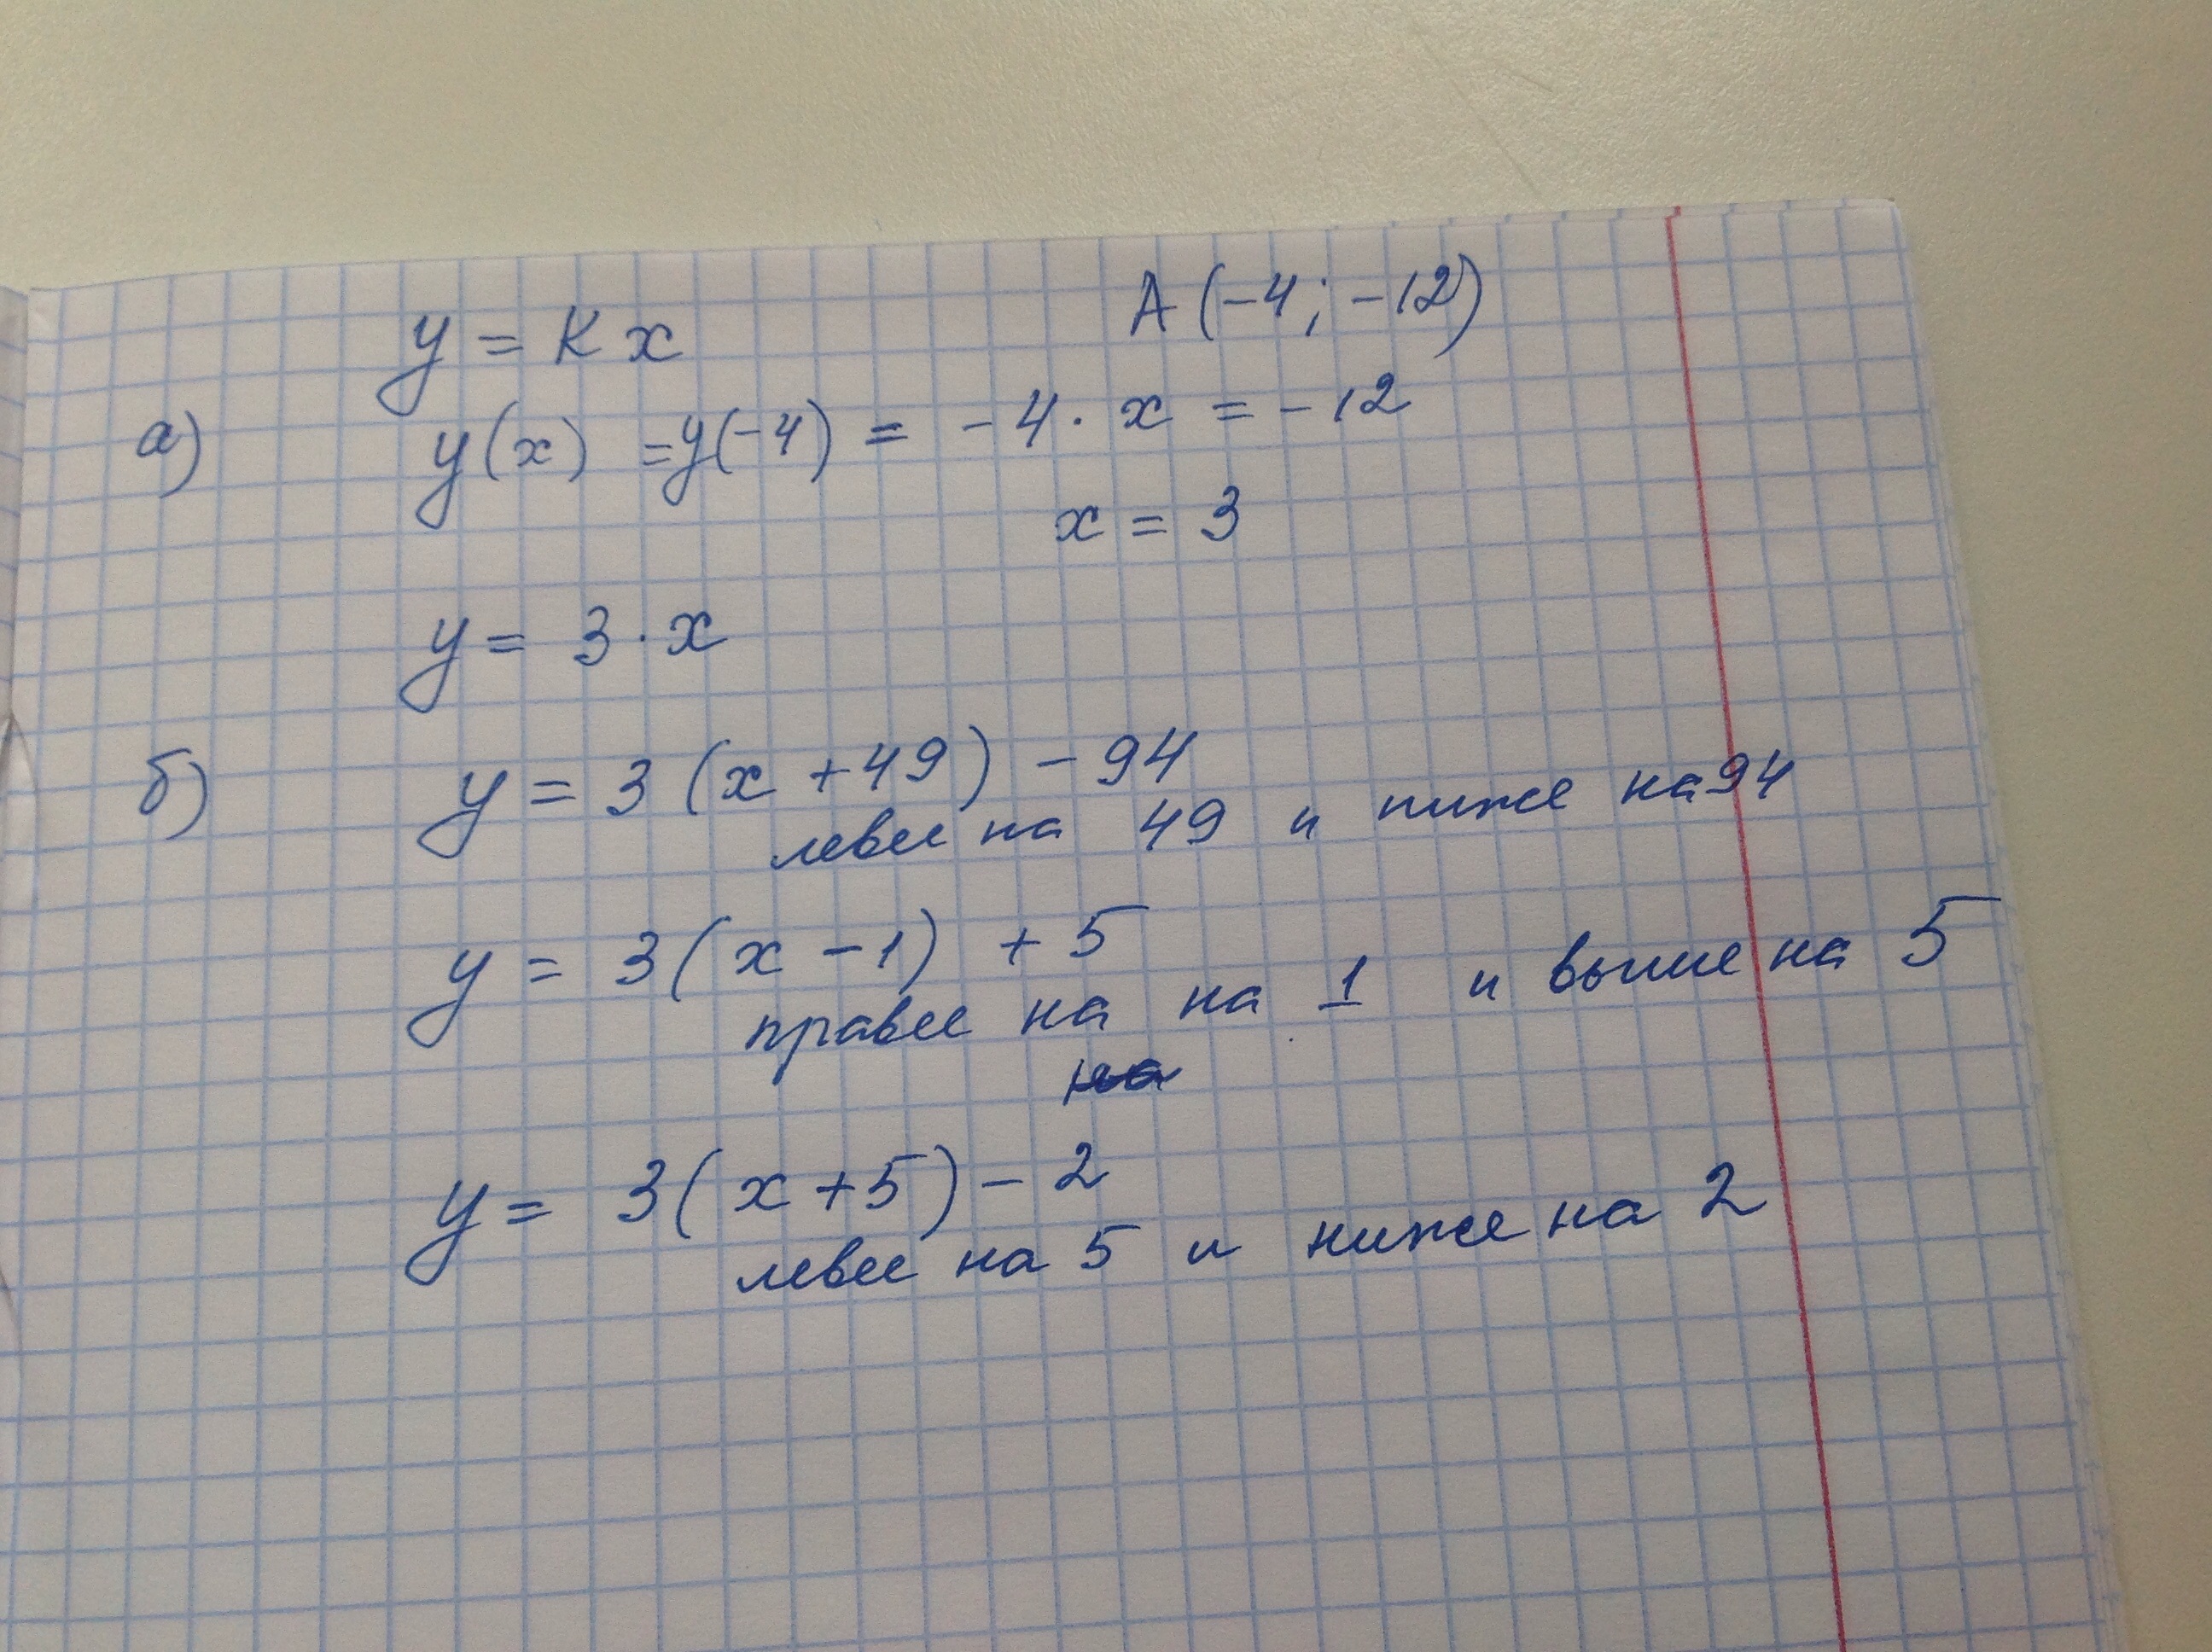 y = K x A (-4; -12)
а) y(x) = y(-4) = -4 · x = -12
x = 3
y = 3 · x
б) y = 3 (x + 49) - 94
левее на 49 и ниже на 94
y = 3 (x - 1) + 5
правее на на 1 и выше на 5
на
y = 3 (x + 5) - 2
левее на 5 и ниже на 2